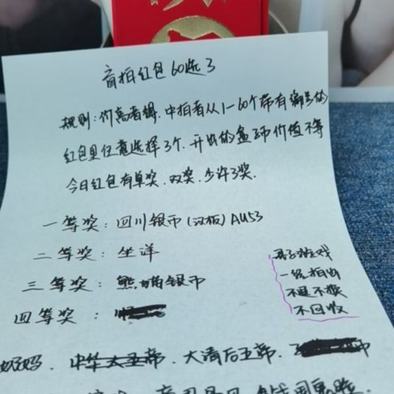 盲拍红包60选3
规则:价高者得.中拍者从1-60个带有编号的
红包里任意选择3个.开出的盒子币价值不等
今日红包有单奖.双奖.少许3奖.
一等奖:四川银币(汉板)AU53
二等奖:坐洋
三等奖:熊猫银币
四等奖:
盲子游戏
一经拍出
不退不换
不回收
大清后五帝.